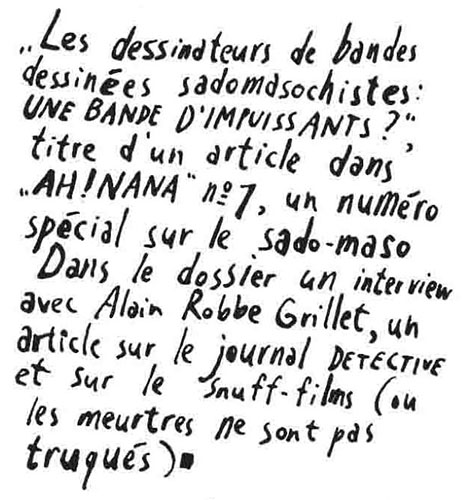 „Les dessinateurs de bandes
dessinées sadomasochistes:
UNE BANDE D'IMPUISSANTS?",
titre d'un article dans
„AH! NANA" nº 7, un numéro
spécial sur le sado-maso
Dans le dossier un interview
avec Alain Robbe Grillet, un
article sur le journal DETECTIVE
et sur le snuff-films (ou
les meurtres ne sont pas
truqués)■